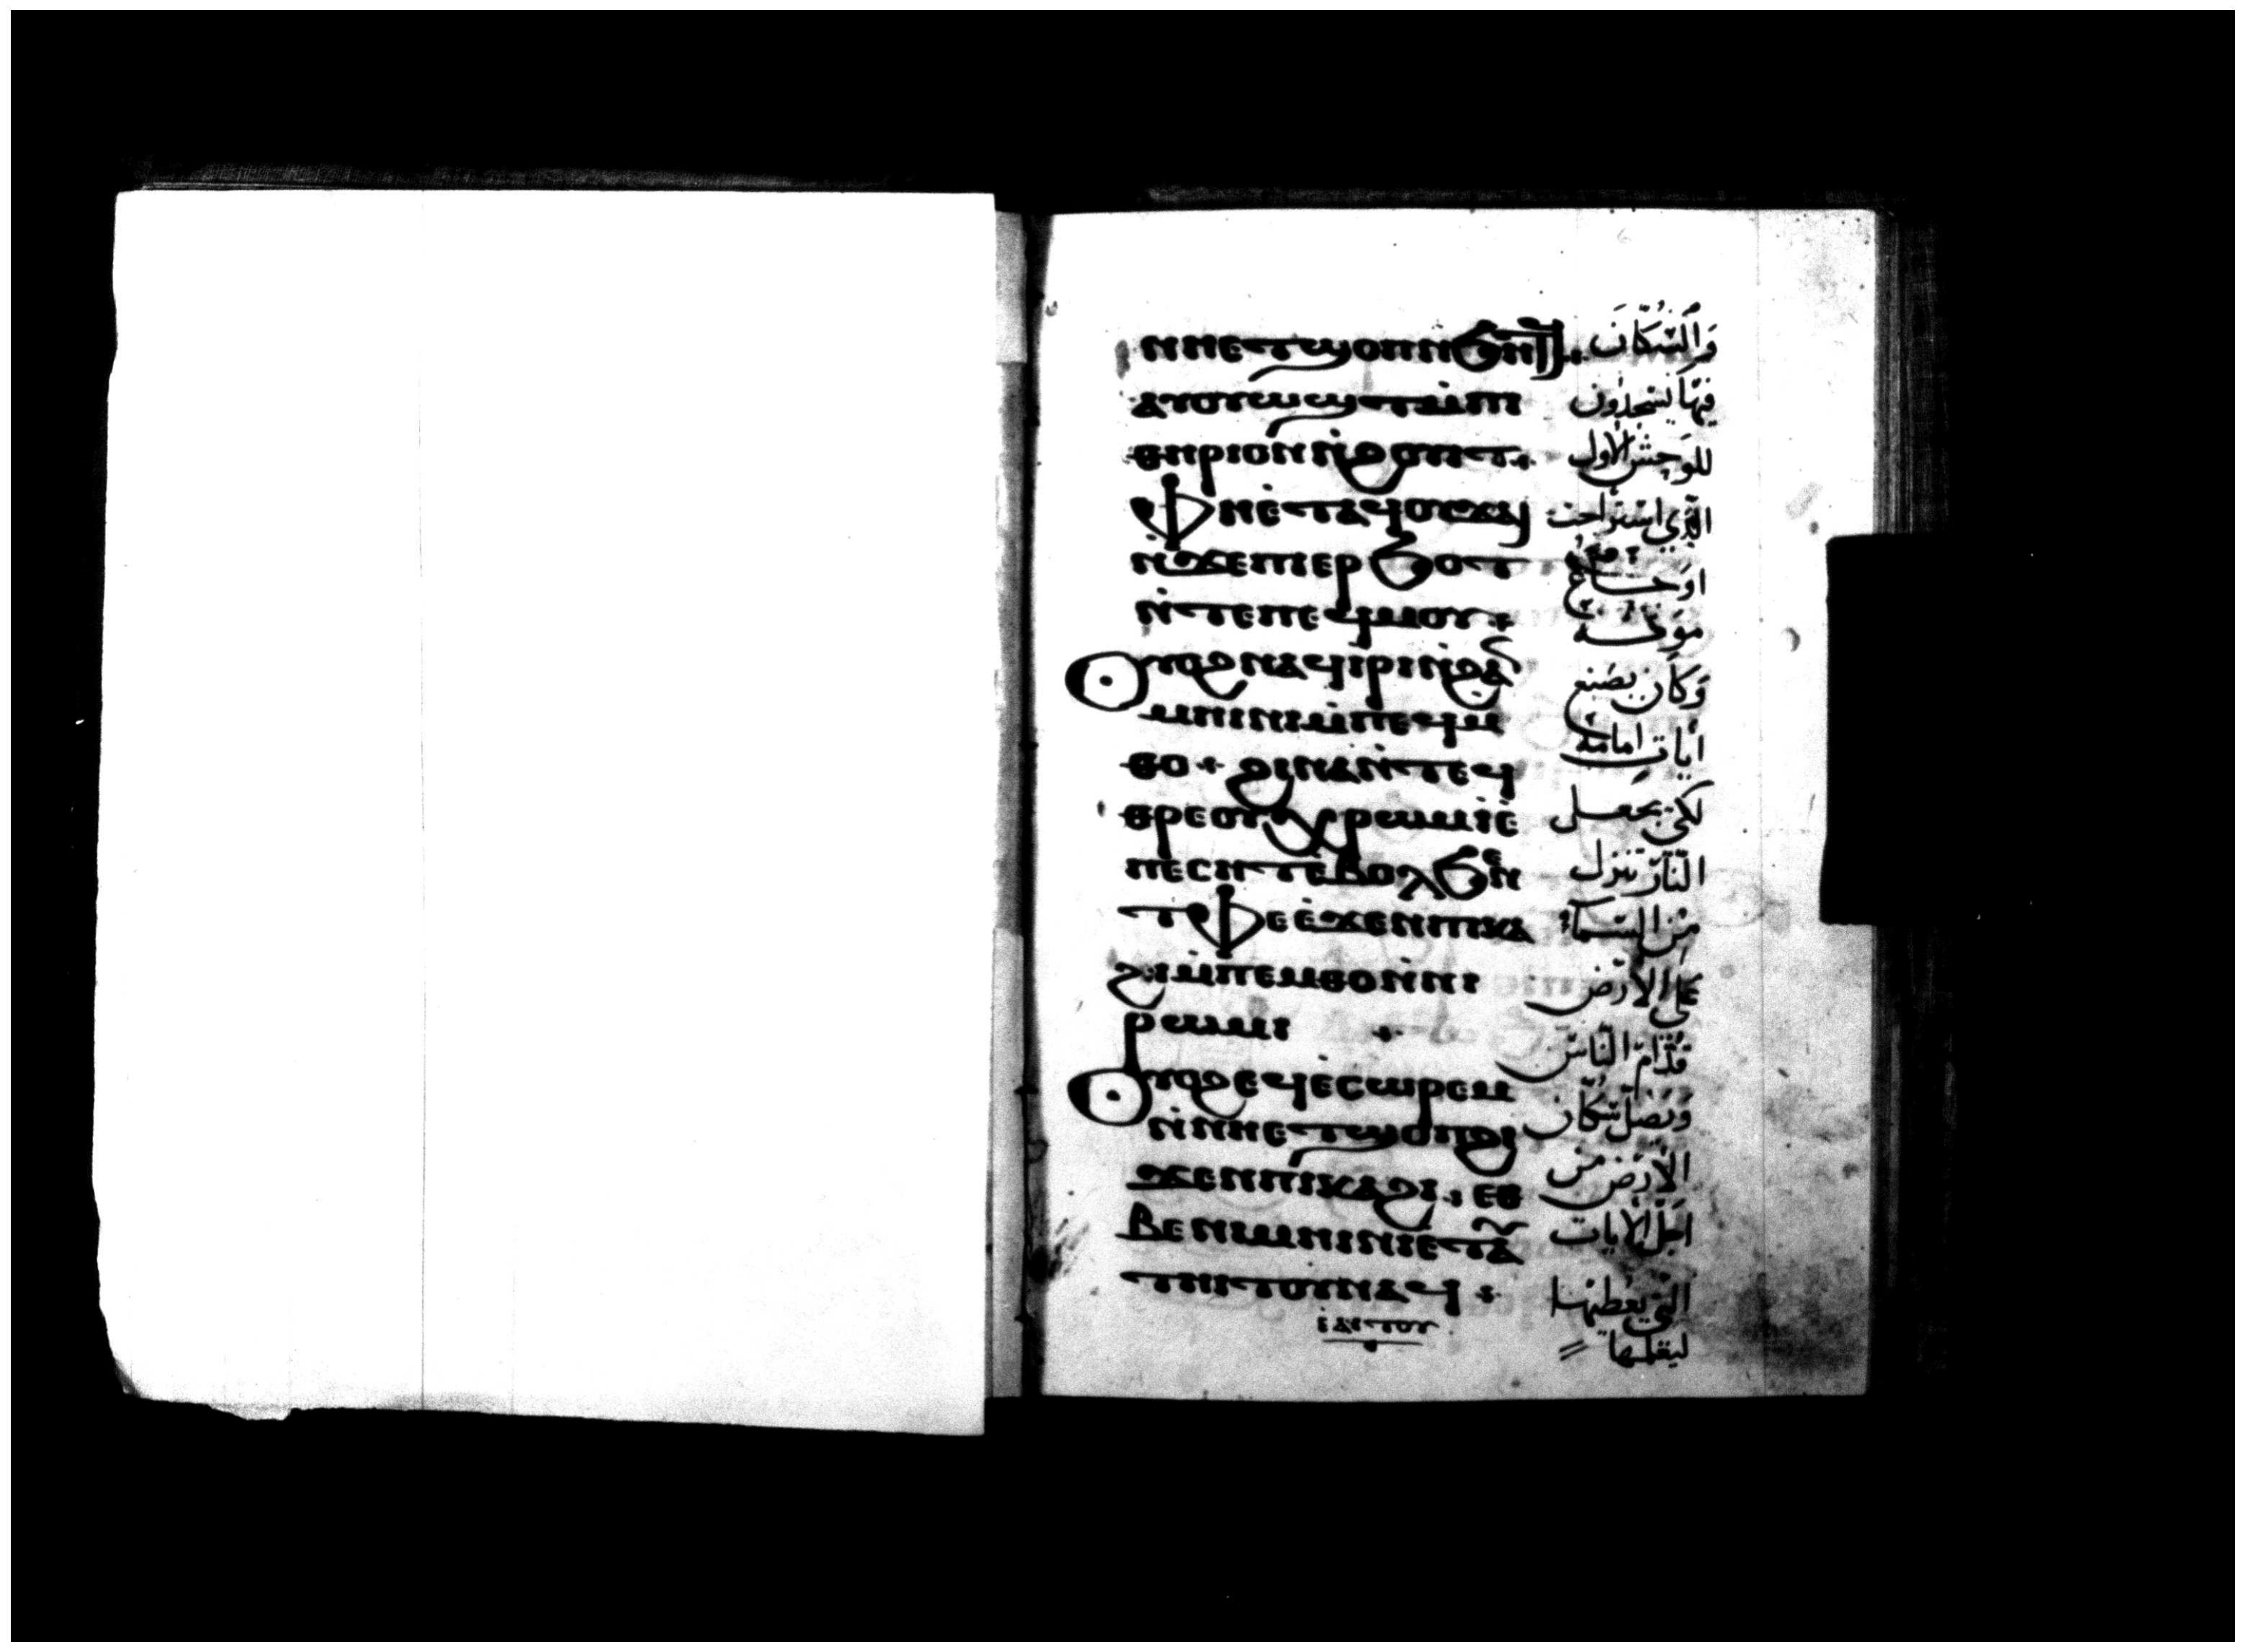 ⲛⲛⲉⲧϣⲟⲡⲛ̀ϧⲏⲧϥ
ⲁⲩⲟⲩⲱϣⲧⲙ̀ⲡⲓ
ⲑⲏⲣⲓⲟⲛⲛ̀ϩⲟⲩⲓⲧ
ⲫⲏⲉ̀ⲧⲁϥⲟⲩϫⲁⲓ
ⲛ̀ϫⲉⲡⲓⲉⲣϧⲟⲧ
ⲛ̀ⲧⲉⲡⲉϥⲙⲟⲩ
Ⲟⲩⲟϩⲛⲁϥⲓⲣⲓⲛ̀ϩⲁⲛ
ⲙⲏⲓⲛⲓⲙ̀ⲡⲉϥⲙ̀
ⲑⲟ ϩⲓⲛⲁⲛ̀ⲧⲉϥ
ⲑⲣⲉⲟⲩⲭⲣⲱⲙⲓⲉ̀
ⲡⲉⲥⲏⲧⲉ̀ⲃⲟⲗϧⲉⲛ
ⲧⲫⲉⲉ̀ϫⲉⲛⲡⲓⲕⲁ
ϩⲓⲙ̀ⲡⲉⲙⲑⲟⲛ̀ⲛⲓ
ⲣⲱⲙⲓ
Ⲟⲩⲟϩⲉϥⲉ̀ⲥⲱⲣⲉⲙ
ⲛ̀ⲛⲏⲉⲧϣⲟⲡϩⲓ
ϫⲉⲛⲡⲓⲕⲁϩⲓ ⲉⲑ
ⲃⲉⲛⲓⲙⲏⲓⲛⲓⲉ̀ⲧⲁⲩ
ⲧⲏⲓⲧⲟⲩⲛⲁϥ
والسُّكّانَ
فيها يسجدون
للوحش الاول
الذي استراحت
اوجاع
موته
وكان يصنع
ايات امامه
لكي يجعل
النار تنزل
من السماء
على الارض
قدام الناس
ويضل سكان
الارض من
اجل الايات
التي يعطيها